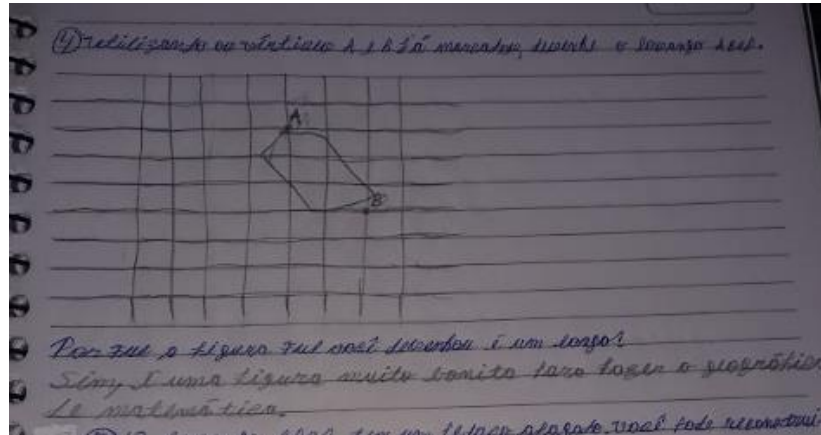 ④ utilizando os vértices A e B já marcados, desenhe o losango
A
B
Por que a figura que você desenhou é um losango?
Sim, É uma figura muito bonita para fazer a
de matemática.
tem um você pode